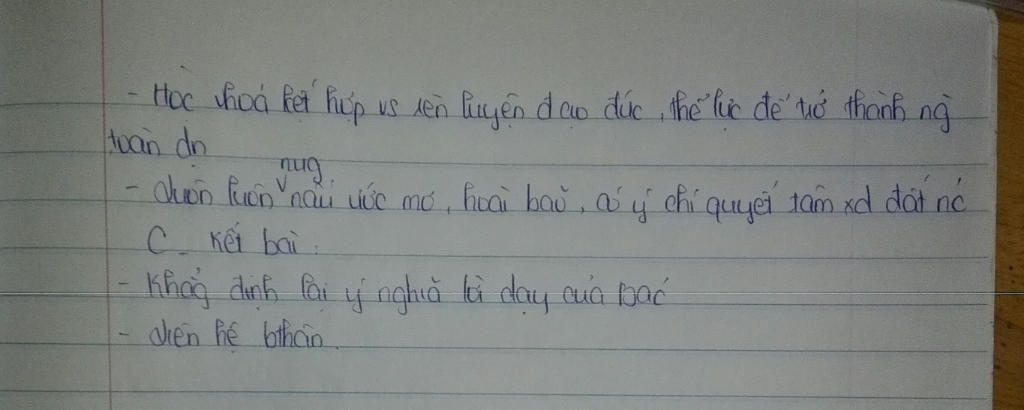 - Học khoá kết hợp vs rèn luyện đạo đức, thể lực để trở thành ng
toàn dn
nug
- Luôn luôn nấu ước mơ, hoài bão, có ý chí quyết tâm xd đất nc
C - Kết bài:
- Khẳng định lại ý nghĩa lời dạy của Bác
- Liên hệ bthân.